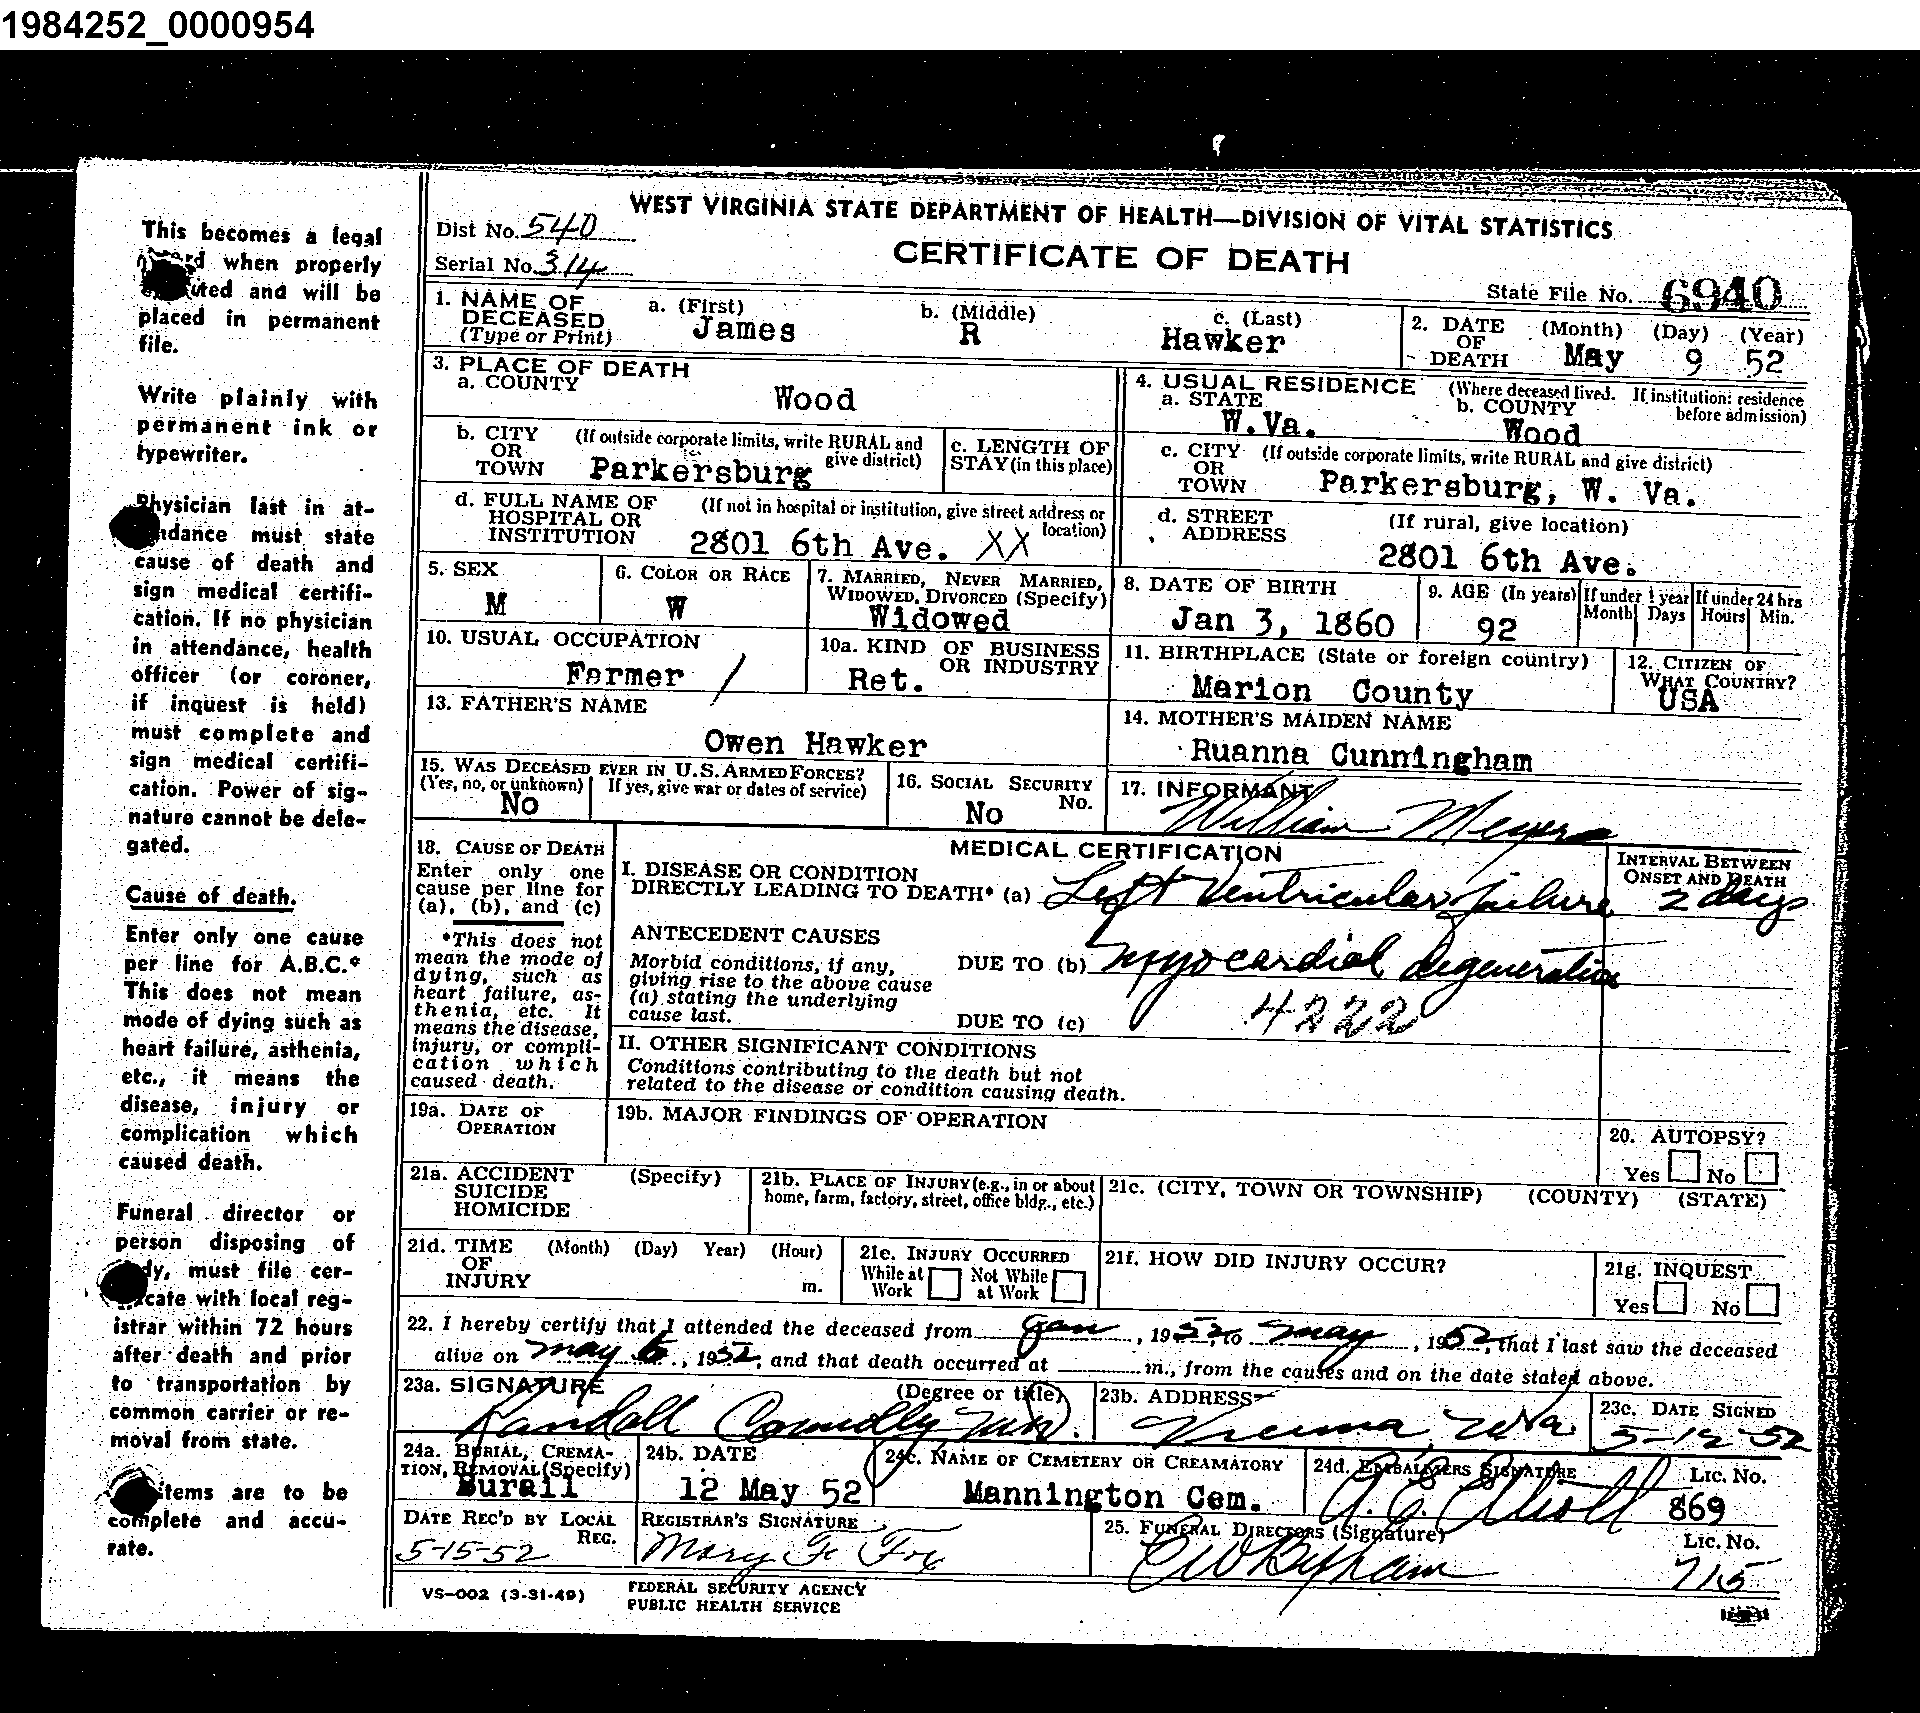 1984252_0000954
This becomes a legal
when properly
and will be
placed in permanent
file.
Write plainly with
permanent ink or
typewriter.
Physician last in at-
tendance must state
cause of death and
sign medical certifi-
cation. If no physician
in attendance, health
officer (or coroner,
if inquest is held)
must complete and
sign medical certifi-
cation. Power of sig-
nature cannot be dele-
gated.
Cause of death.
Enter only one cause
per line for A.B.C.*
This does not mean
mode of dying such as
heart failure, asthenia,
etc., it means the
disease, injury or
complication which
caused death.
Funeral director or
person disposing of
must file cer-
with local reg-
istrar within 72 hours
after death and prior
to transportation by
common carrier or re-
moval from state.
items are to be
complete and accu-
rate.
WEST VIRGINIA STATE DEPARTMENT OF HEALTH—DIVISION OF VITAL STATISTICS
Dist No. 540
CERTIFICATE OF DEATH
Serial No. 314
State File No. 6940
1. NAME OF DECEASED (Type or Print) a. (First) James b. (Middle) R c. (Last) Hawker
2. DATE OF DEATH (Month) (Day) (Year) May 9 52
3. PLACE OF DEATH
a. COUNTY Wood
4. USUAL RESIDENCE (Where deceased lived. If institution: residence before admission)
a. STATE W.Va. b. COUNTY Wood
b. CITY OR TOWN (If outside corporate limits, write RURAL and give district) Parkersburg
c. LENGTH OF STAY (in this place)
c. CITY OR TOWN (If outside corporate limits, write RURAL and give district) Parkersburg, W. Va.
d. FULL NAME OF HOSPITAL OR INSTITUTION (If not in hospital or institution, give street address or location) 2801 6th Ave. XX
d. STREET ADDRESS (If rural, give location) 2801 6th Ave.
5. SEX M
6. COLOR OR RACE W
7. MARRIED, NEVER MARRIED, WIDOWED, DIVORCED (Specify) Widowed
8. DATE OF BIRTH Jan 3, 1860
9. AGE (In years) 92 If under 1 year Month Days If under 24 hrs Hours Min.
10. USUAL OCCUPATION Farmer /
10a. KIND OF BUSINESS OR INDUSTRY Ret.
11. BIRTHPLACE (State or foreign country) Marion County
12. CITIZEN OF WHAT COUNTRY? USA
13. FATHER'S NAME Owen Hawker
14. MOTHER'S MAIDEN NAME Ruanna Cunningham
15. WAS DECEASED EVER IN U.S. ARMED FORCES? (Yes, no, or unknown) No If yes, give war or dates of service)
16. SOCIAL SECURITY No. No
17. INFORMANT William Meyers
18. CAUSE OF DEATH
Enter only one
cause per line for
(a), (b), and (c)
*This does not
mean the mode of
dying, such as
heart failure, as-
thenia, etc. It
means the disease,
injury, or compli-
cation which
caused death.
MEDICAL CERTIFICATION
INTERVAL BETWEEN ONSET AND DEATH
I. DISEASE OR CONDITION
DIRECTLY LEADING TO DEATH* (a) Left Ventricular failure 2 days
ANTECEDENT CAUSES
Morbid conditions, if any,
giving rise to the above cause
(a) stating the underlying
cause last.
DUE TO (b) myocardial degeneration
DUE TO (c) 4222
II. OTHER SIGNIFICANT CONDITIONS
Conditions contributing to the death but not
related to the disease or condition causing death.
19a. DATE OF OPERATION
19b. MAJOR FINDINGS OF OPERATION
20. AUTOPSY?
Yes No
21a. ACCIDENT SUICIDE HOMICIDE (Specify)
21b. PLACE OF INJURY (e.g., in or about home, farm, factory, street, office bldg., etc.)
21c. (CITY, TOWN OR TOWNSHIP) (COUNTY) (STATE)
21d. TIME OF INJURY (Month) (Day) Year) (Hour) m.
21e. INJURY OCCURRED While at Work Not While at Work
21f. HOW DID INJURY OCCUR?
21g. INQUEST
Yes No
22. I hereby certify that I attended the deceased from Jan, 1952, to May, 1952, that I last saw the deceased
alive on May 6, 1952, and that death occurred at m., from the causes and on the date stated above.
23a. SIGNATURE (Degree or title) Randall Connolly M.D.
23b. ADDRESS Vienna, W.Va.
23c. DATE SIGNED 5-12-52
24a. BURIAL, CREMATION, REMOVAL (Specify) Burail
24b. DATE 12 May 52
24c. NAME OF CEMETERY OR CREAMATORY Mannington Cem.
24d. EMBALMERS SIGNATURE A. E. Elliott Lic. No. 869
DATE REC'D BY LOCAL REG. 5-15-52
REGISTRAR'S SIGNATURE Mary F. Fox
25. FUNERAL DIRECTORS (Signature) Lic. No. 715
VS-002 (3-31-49)
FEDERAL SECURITY AGENCY
PUBLIC HEALTH SERVICE